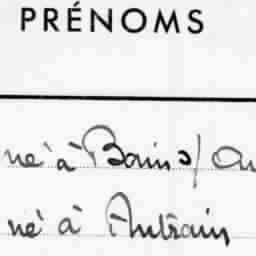 PRÉNOMS
né à Bains s/ Ou
né à Antrain